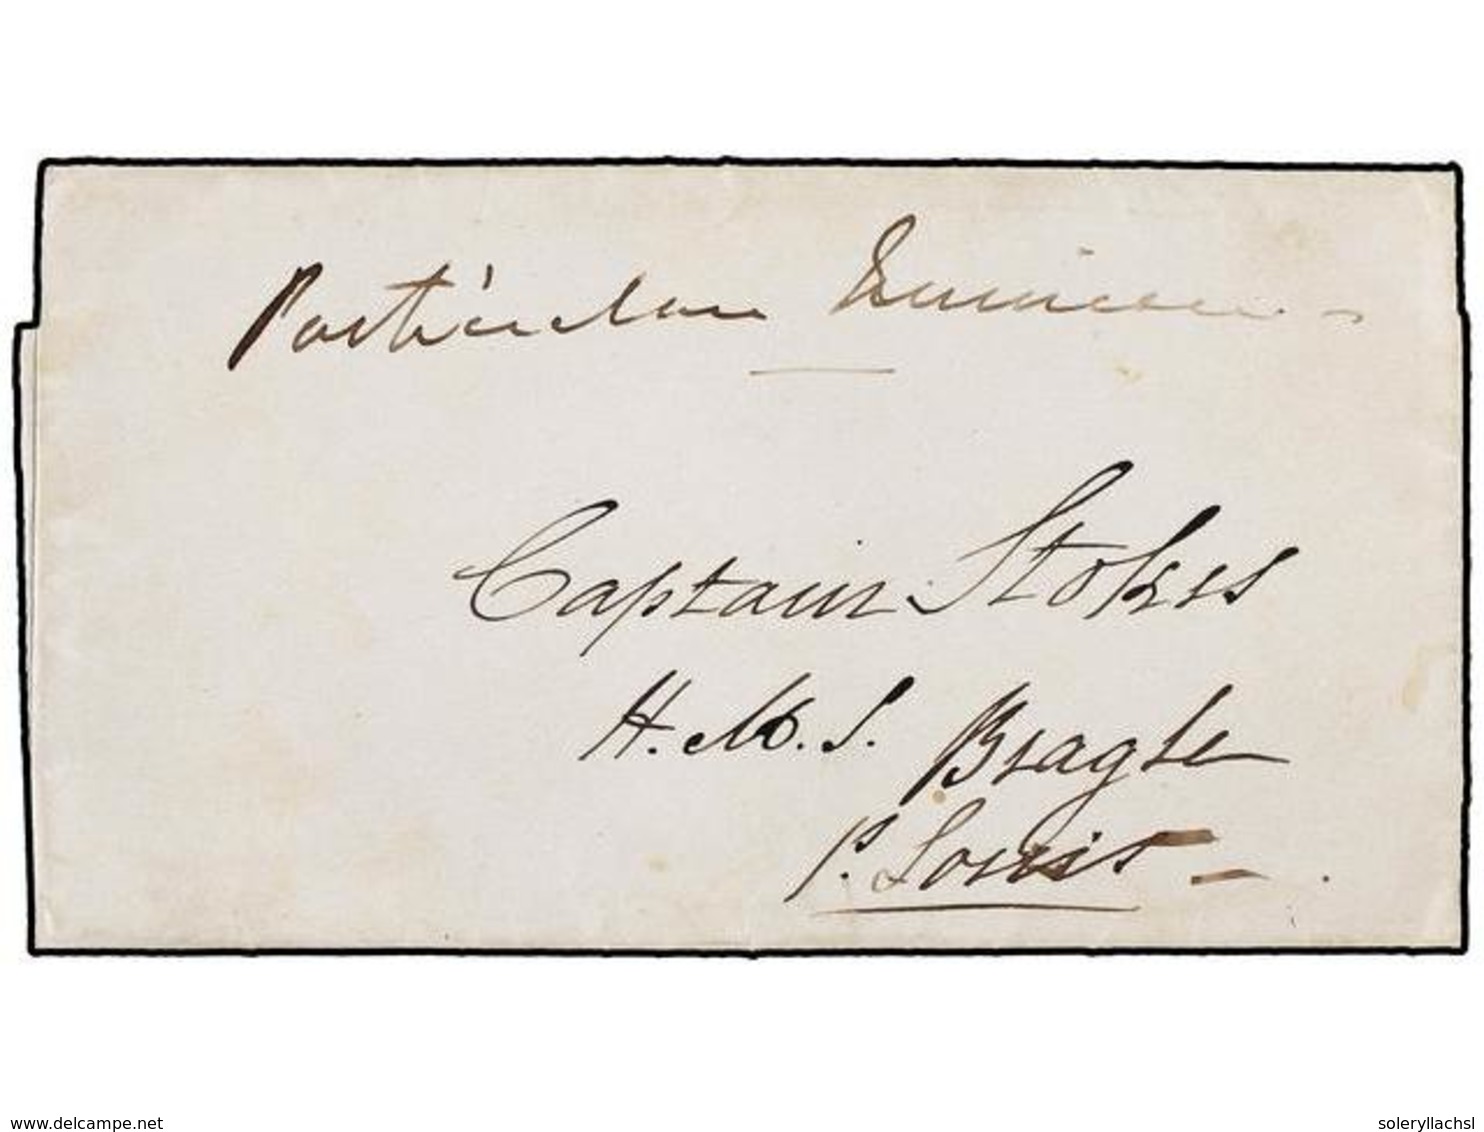 Particular
Captain Stokes
H. M. S. Beagle
P. Louis
delcampe.net
soleryllachsl